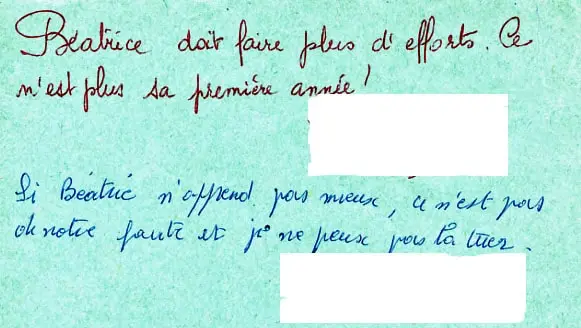 Béatrice doit faire plus d'efforts. Ce
n'est plus sa première année !
Si Béatric n'apprend pas mieux, ce n'est pas
de notre faute et je ne peux pas la tuer.